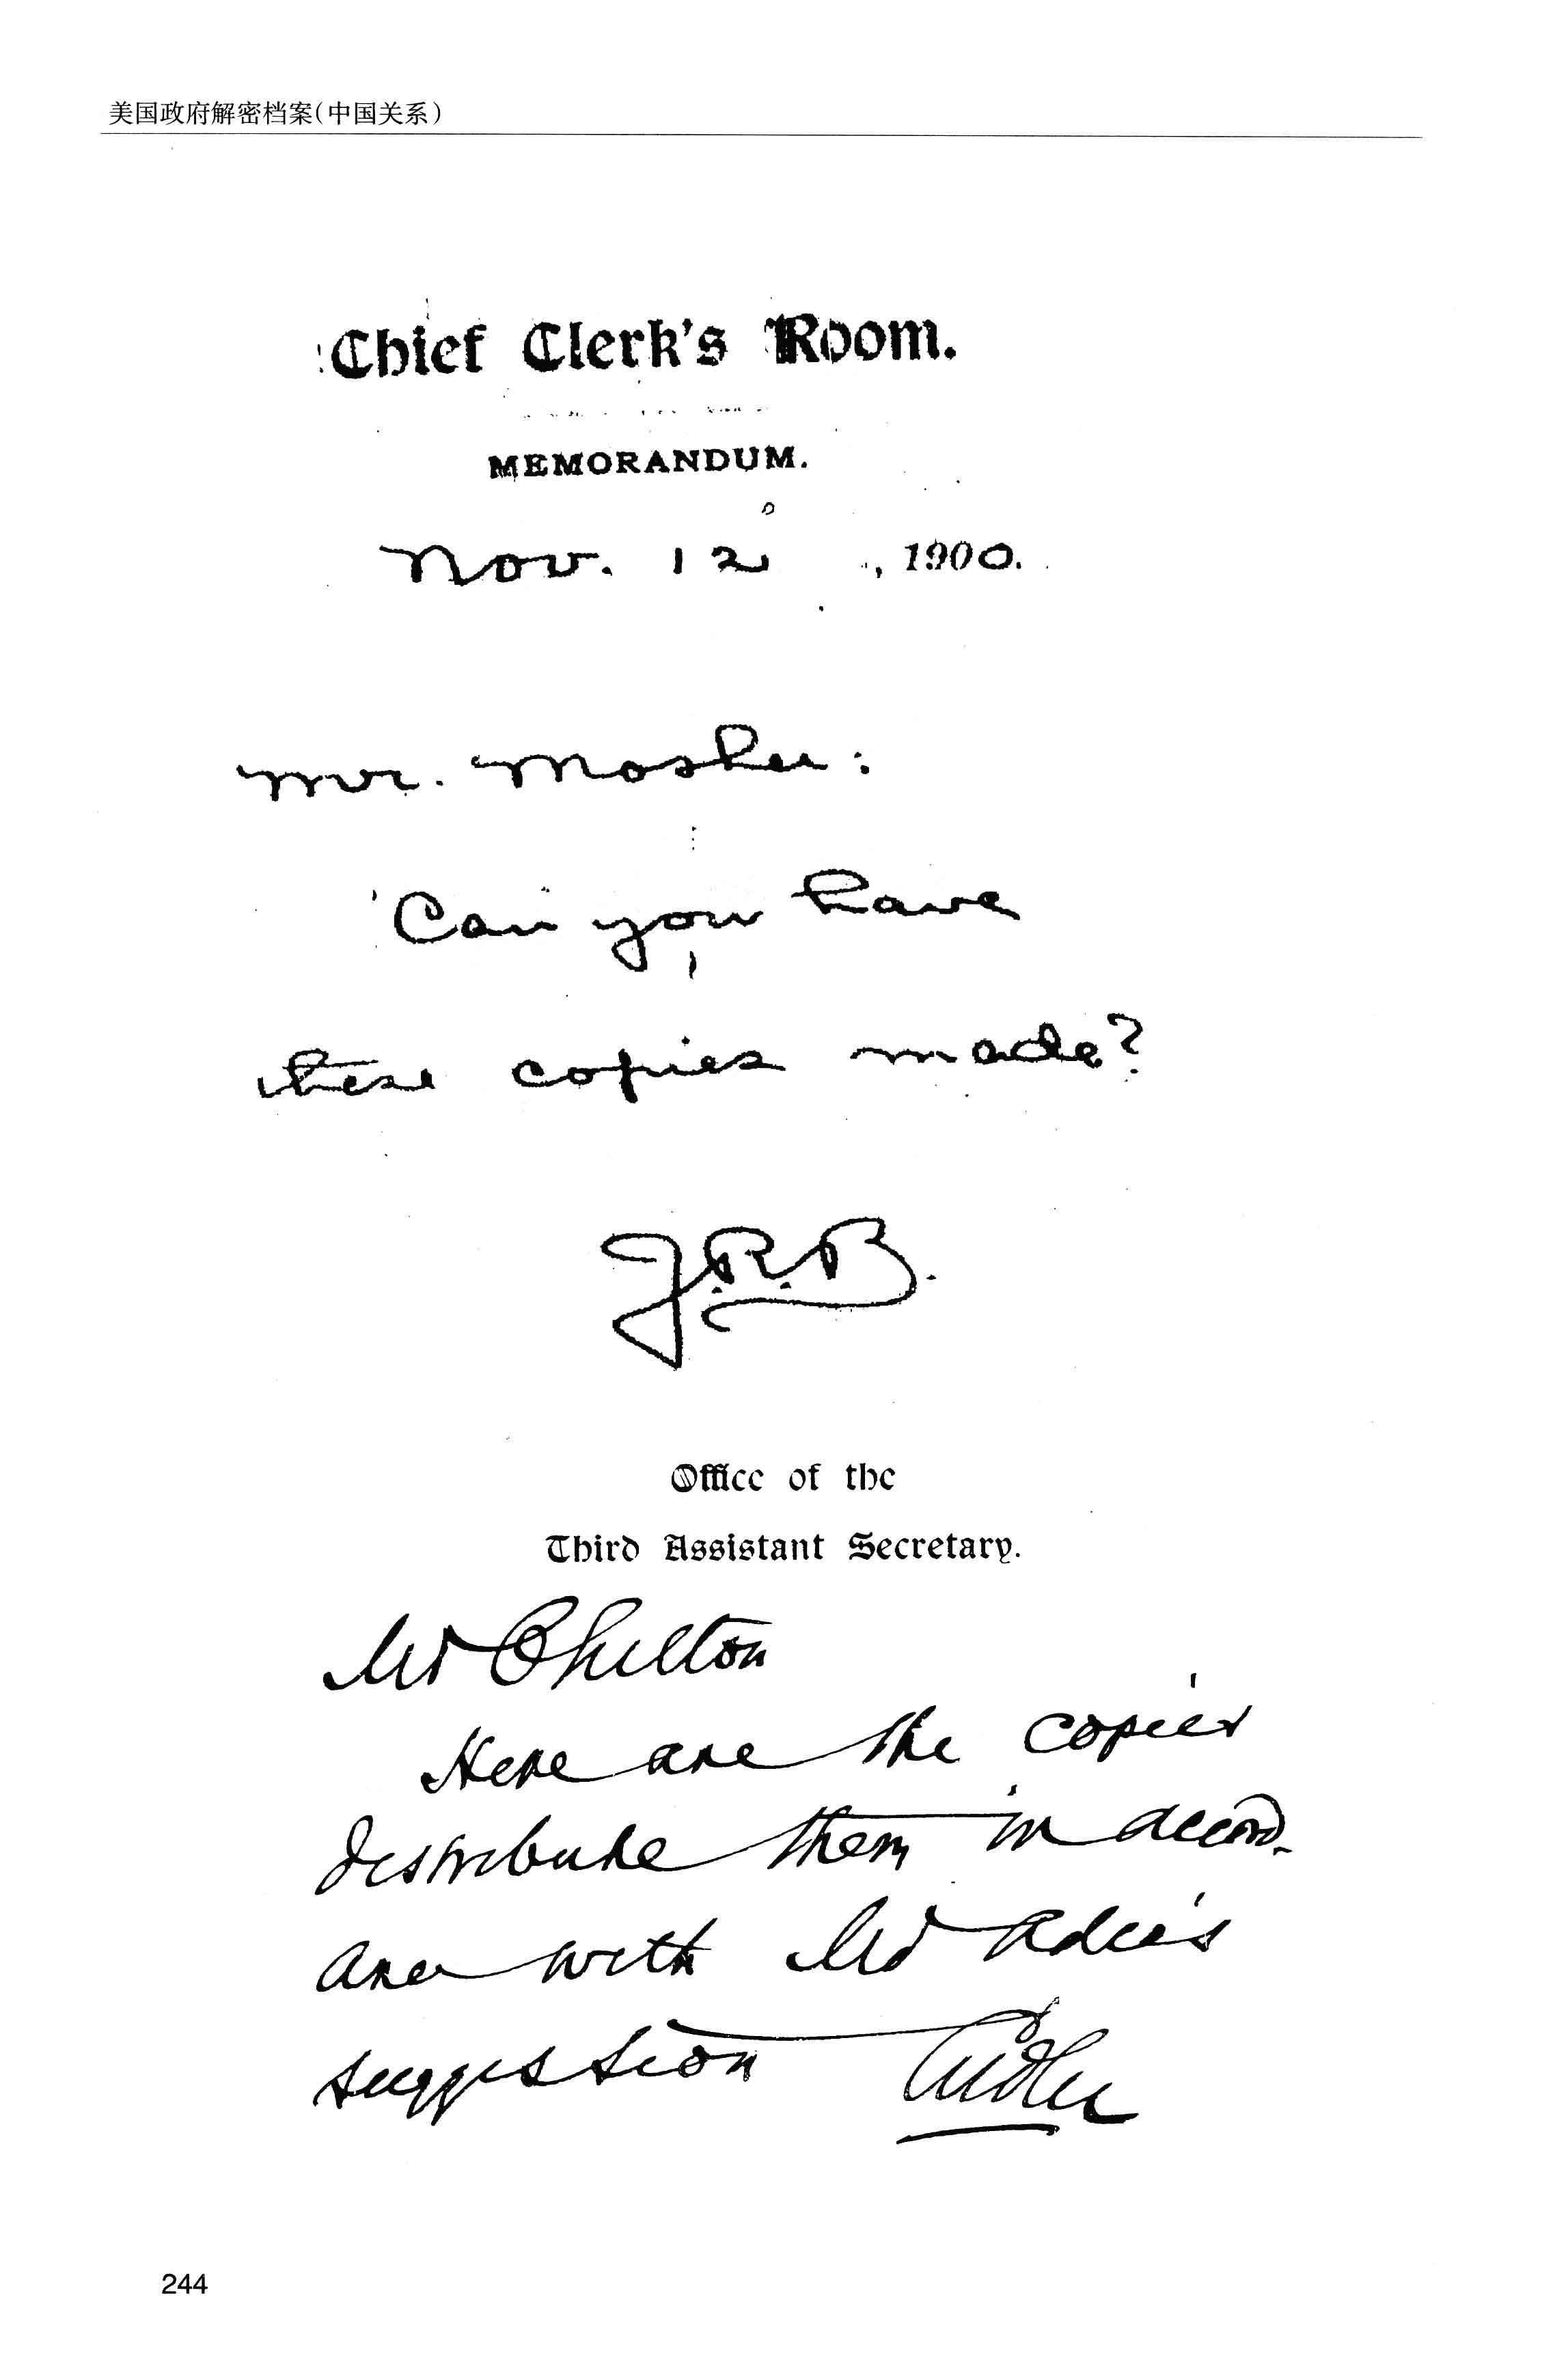 美国政府解密档案(中国关系)
Chief Clerk's Room.
MEMORANDUM.
Nov. 12, 1900.
Mr. Mosher:
Can you have
these copies made?
J.R.B.
Office of the
Third Assistant Secretary.
Mr Chilton
Here are the copies
distribute them in accord-
ance with Mr Adee's
suggestion
244